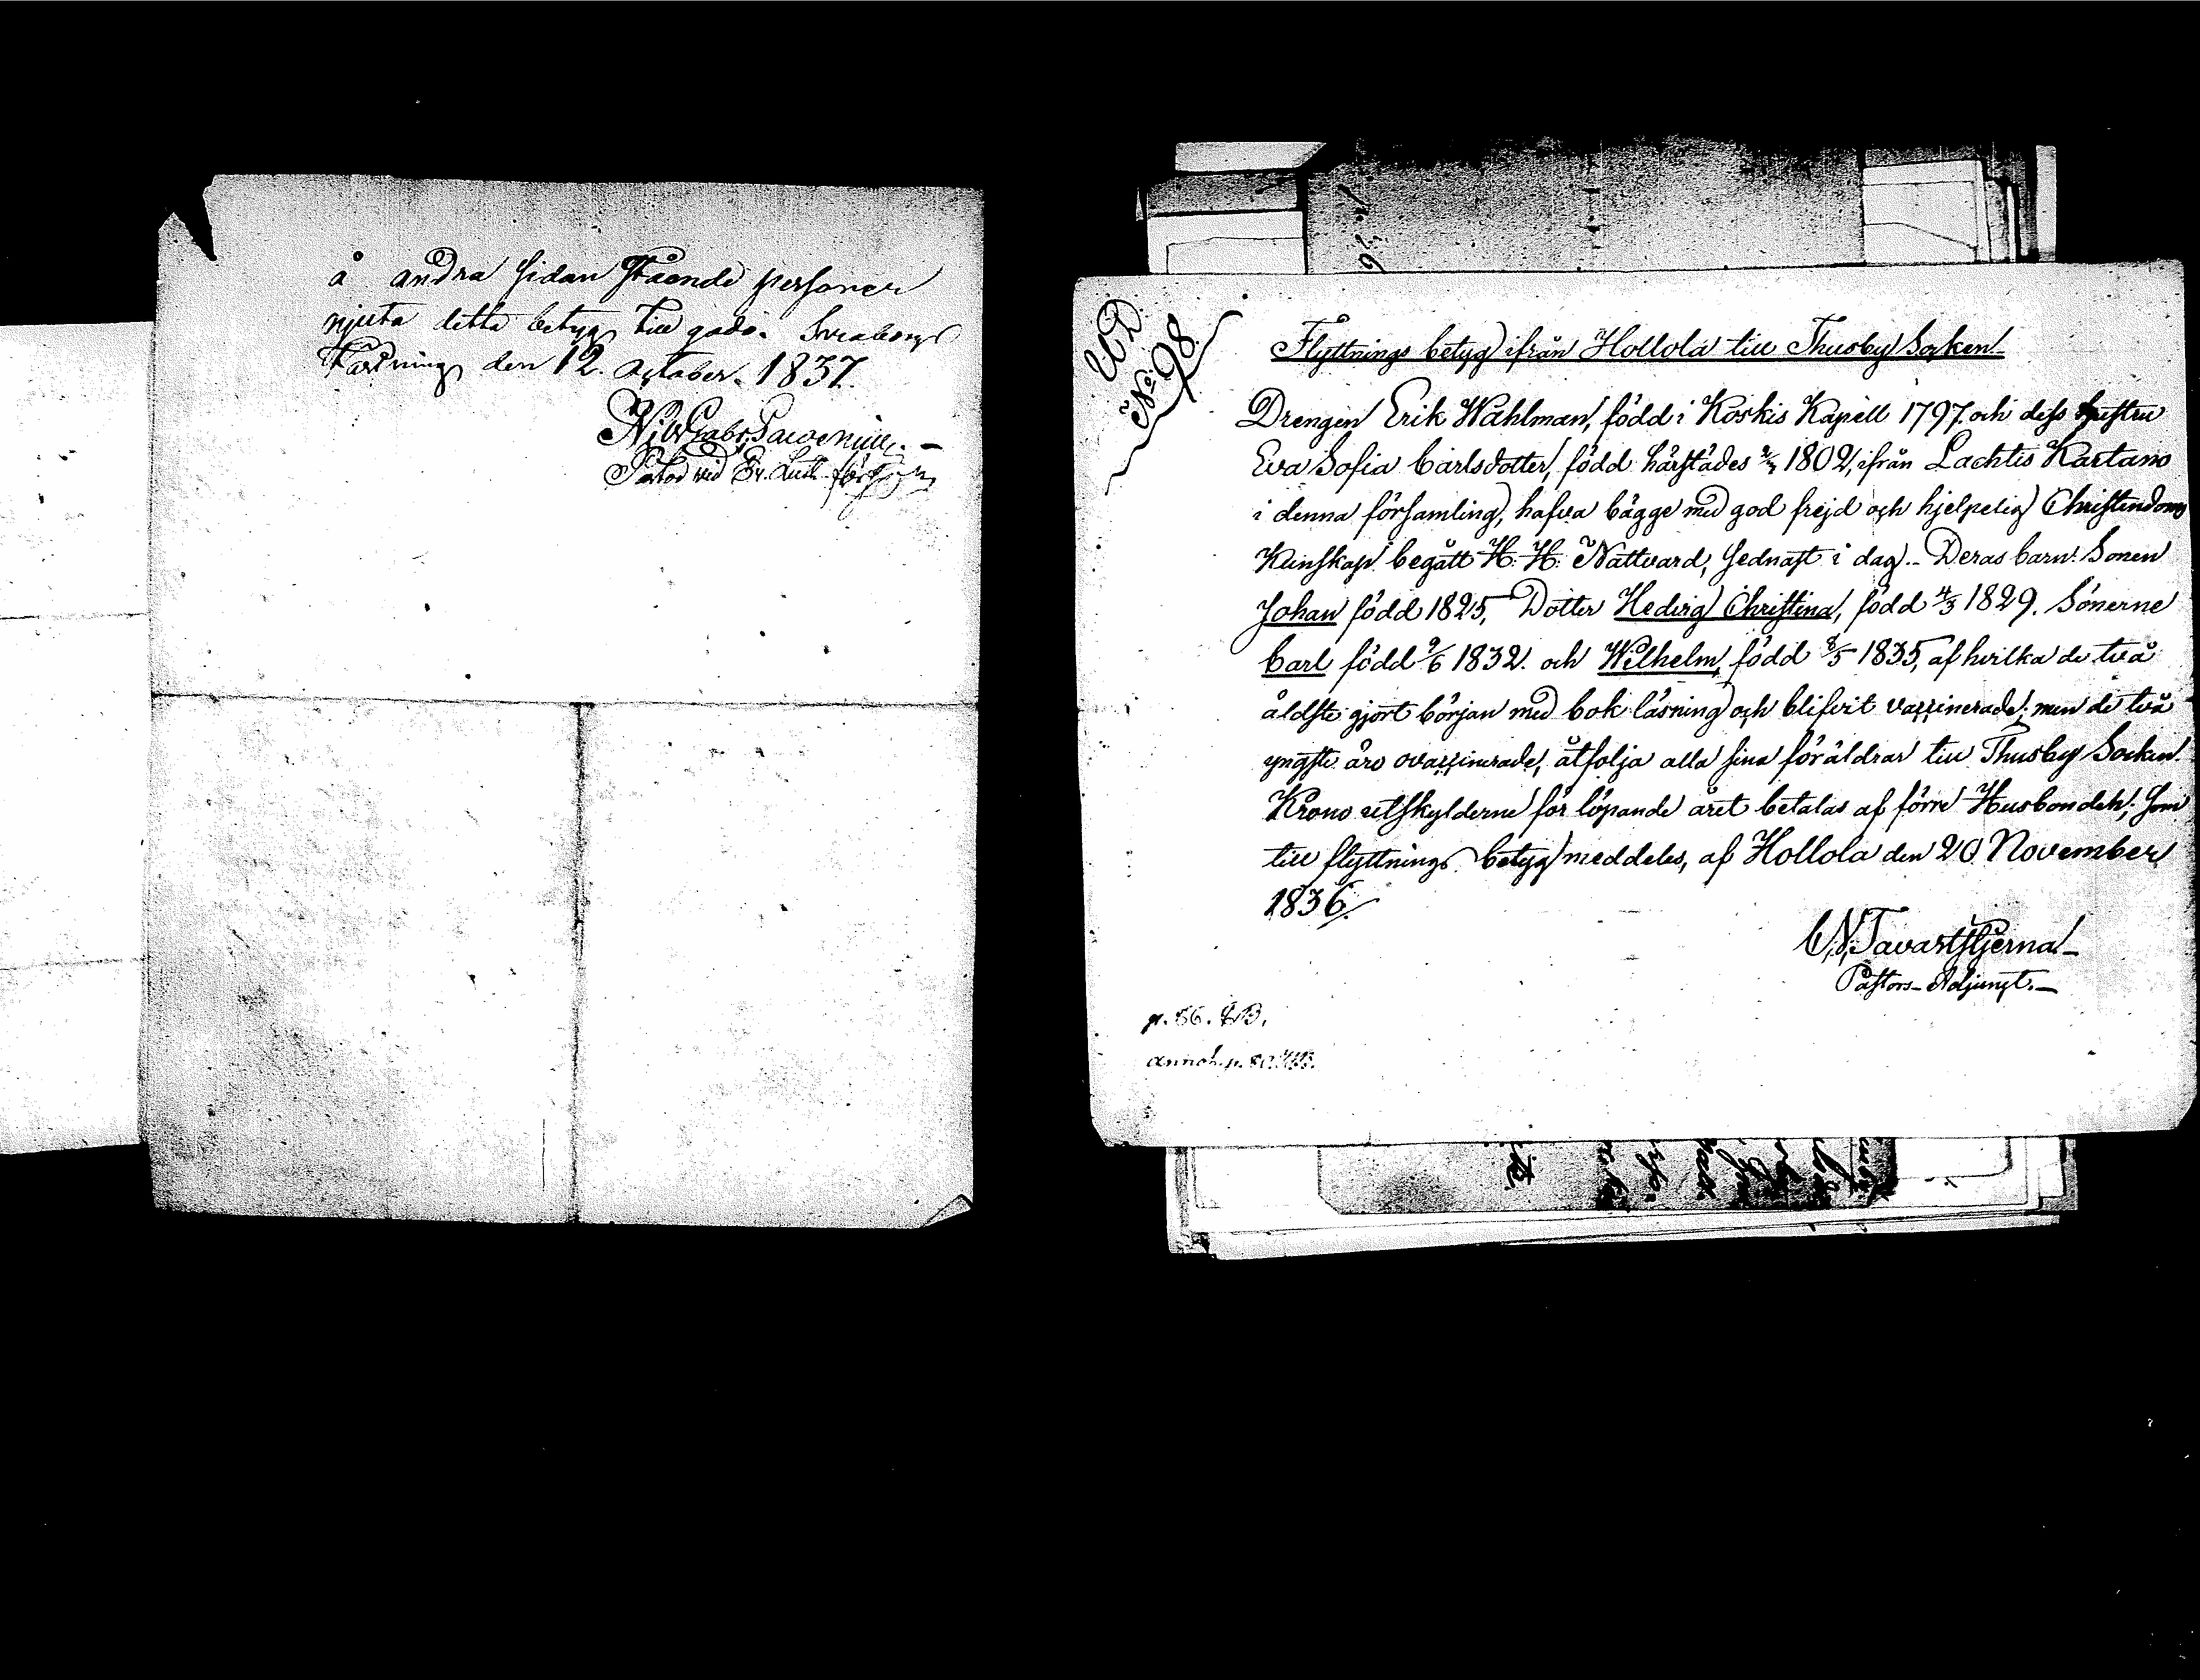 å andra sidan stående personer
njuta detta betyg till godo. Sveaborgs
Fästning den 12. October. 1837.
Nils Gabr.
Pastor vid Ev. Luth. förs
UD
No. 98.
Flyttnings betyg ifrån Hollola till Thusby Socken
Drengen Erik Wahlman, född i Koskis Kapell 1797. och dess hustru
Eva Sofia Carlsdotter, född härstädes 1802, ifrån Lachtis Kartano
i denna församling, hafva bägge med god frejd och hjelpelig Christendoms
Kunskap begått H. H. Nattvard, sednast i dag. - Deras barn: Sonen
Johan född 1825, Dotter Hedvig Christina, född 4/3 1829. Sönerne
Carl född 9/6 1832. och Wilhelm, född 8/5 1835, af hvilka de två
äldste gjort början med bok läsning och blifvit vaccinerade; men de två
yngste äro ovaccinerade, åtfölja alla sina föräldrar till Thusby Socken.
Krono utskylderne för löpande året betalas af förre Husbonden; Som
till flyttnings betyg meddeles, af Hollola den 20 November
1836.
C. N. Tavaststjerna -
Pastors-Adjunct. -
p. 86.
annot. p.